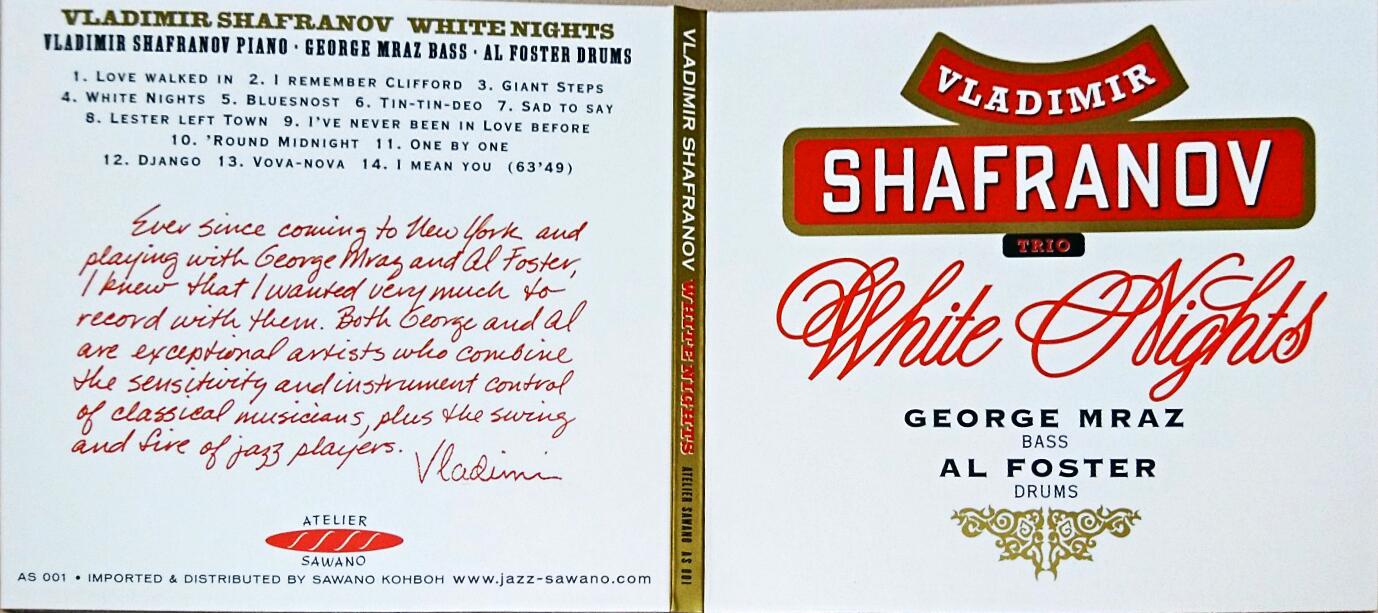 VLADIMIR SHAFRANOV WHITE NIGHTS
VLADIMIR SHAFRANOV PIANO · GEORGE MRAZ BASS · AL FOSTER DRUMS
1. LOVE WALKED IN 2. I REMEMBER CLIFFORD 3. GIANT STEPS
4. WHITE NIGHTS 5. BLUESNOST 6. TIN-TIN-DEO 7. SAD TO SAY
8. LESTER LEFT TOWN 9. I'VE NEVER BEEN IN LOVE BEFORE
10. 'ROUND MIDNIGHT 11. ONE BY ONE
12. DJANGO 13. VOVA-NOVA 14. I MEAN YOU (63'49)
Ever since coming to New York and
playing with George Mraz and Al Foster,
I knew that I wanted very much to
record with them. Both George and Al
are exceptional artists who combine
the sensitivity and instrument control
of classical musicians, plus the swing
and fire of jazz players.
Vladimir
ATELIER
SAWANO
AS 001 • IMPORTED & DISTRIBUTED BY SAWANO KOHBOH www.jazz-sawano.com
VLADIMIR SHAFRANOV WHITE NIGHTS ATELIER SAWANO AS 001
VLADIMIR
SHAFRANOV
TRIO
White Nights
GEORGE MRAZ
BASS
AL FOSTER
DRUMS